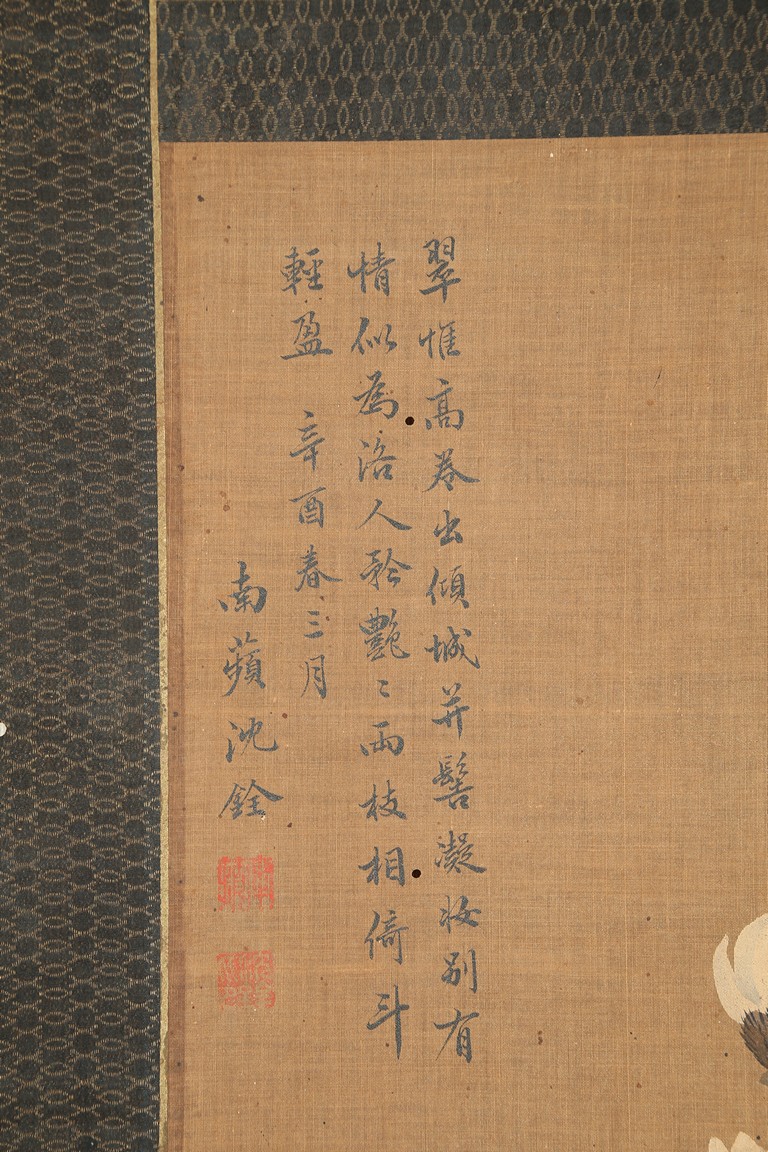 翠帷高卷出傾城并髻凝妝別有
情似為洛人矜艷〻兩枝相倚斗
輕盈 辛酉春三月
南蘋沈銓